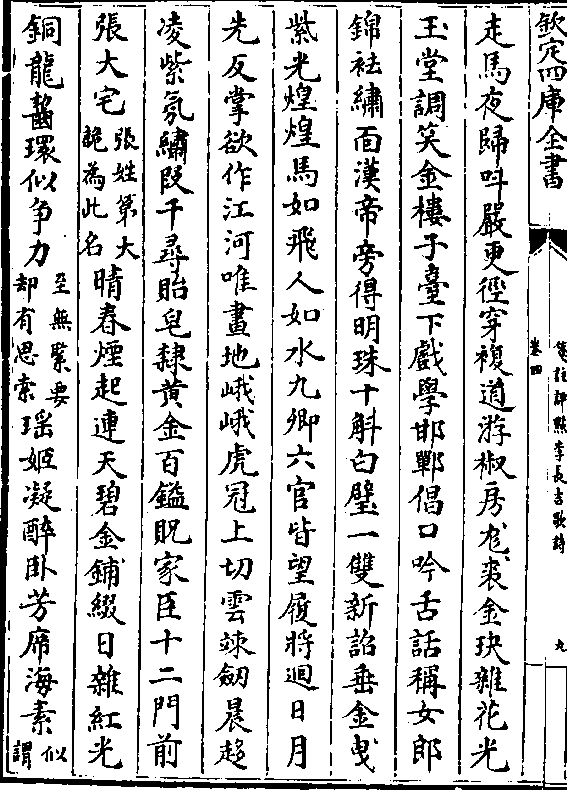 欽定四庫全書
箋註評點李長吉歌詩
卷四
九
走馬夜歸呌嚴更徑穿複道游椒房尨裘金玦雜花光
玉堂調笑金樓子臺下戲學邯鄲倡口吟舌話稱女郎
錦袪繡面漢帝旁得明珠十斛白璧一雙新詔垂金曳
紫光煌煌馬如飛人如水九卿六官皆望履將迴日月
先反掌欲作江河唯畫地峨峨虎冠上切雲竦劒晨趍
凌紫氛繡段千尋貽皂隸黃金百鎰貺家臣十二門前
張大宅張姓第大詭為此名晴春煙起連天碧金鋪綴日雜紅光
銅龍齧環似争力至無緊要却有思索瑤姬凝醉卧芳席海素似謂